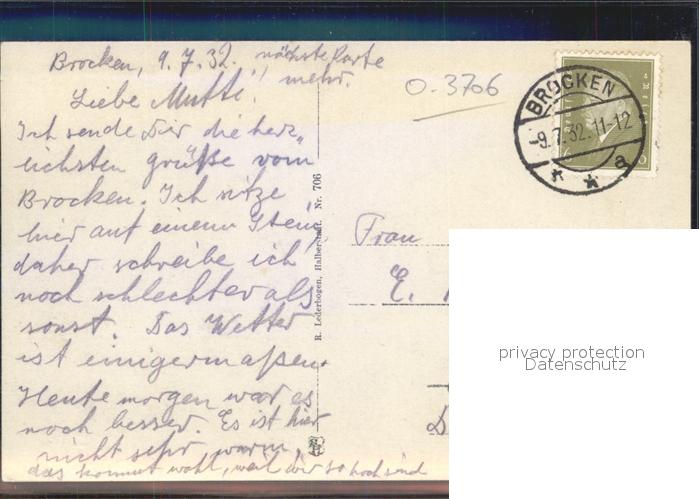 Brocken, 9.7.32. nächste Karte
mehr.
Liebe Mutti!
Ich sende Dir die herz-
lichsten grüße vom
Brocken. Ich sitze
hier auf einem Stein,
daher schreibe ich
noch schlechter als
sonst. Das Wetter
ist einigermaßen.
Heute morgen war es
noch besser. Es ist hier
nicht sehr warm,
das kommt wohl, weil wir so hoch sind
O-3706
BROCKEN
-9.7.32.11-12
* * a
R. Lederbogen, Halberstadt. Nr. 706
Frau
E.
D
privacy protection
Datenschutz